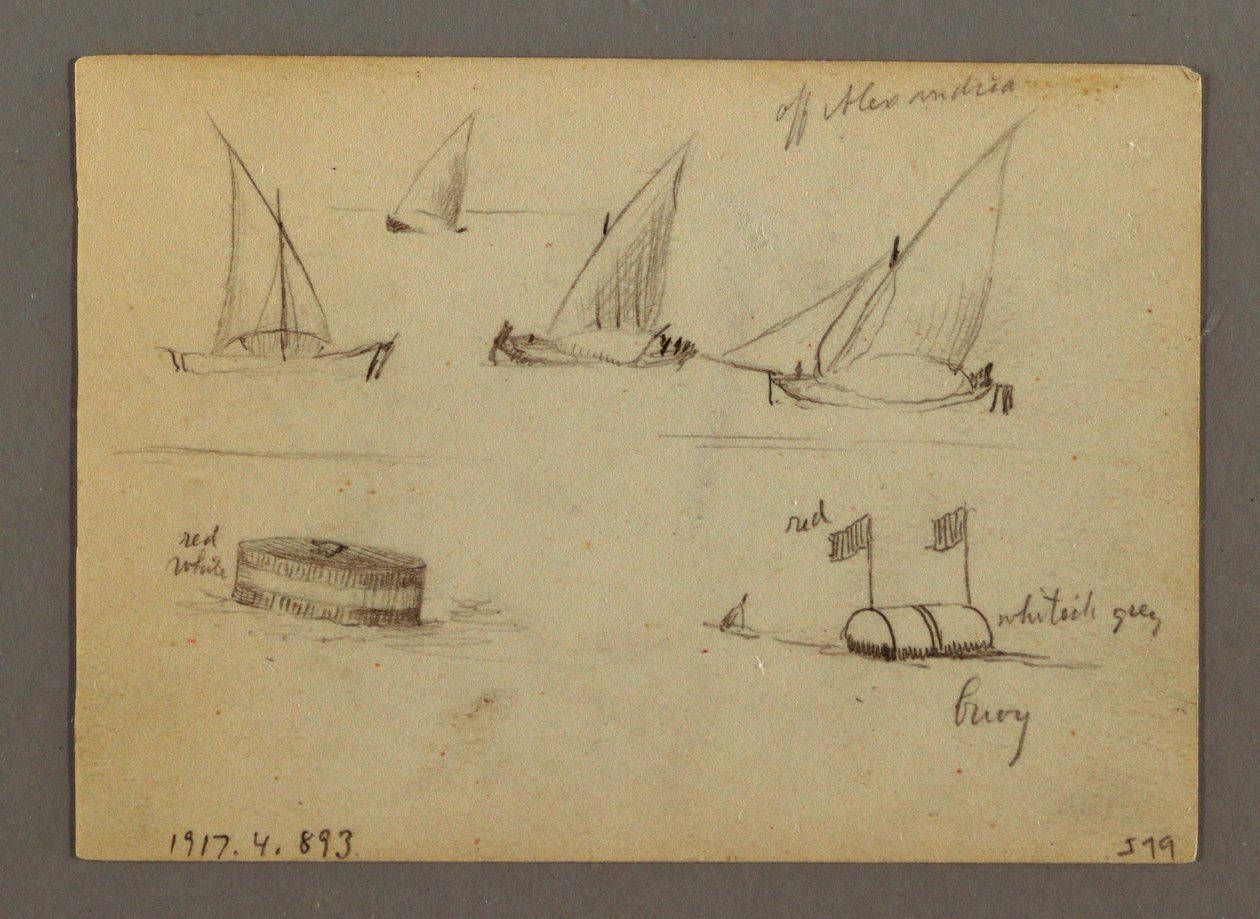 off Alexandria
red
white
red
whiteish grey
buoy
1917.4.893.
579